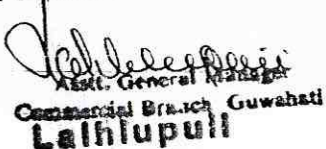 Asstt. General Manager
Commercial Branch Guwahati
Lalhlupuii